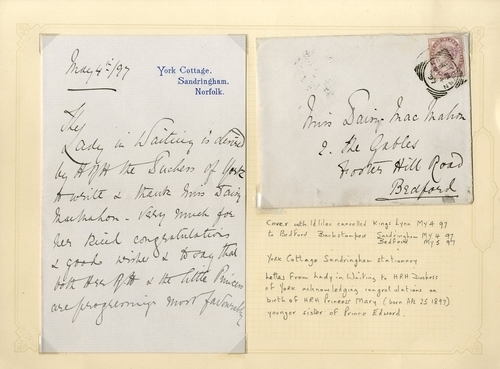 May 4th/97
York Cottage,
Sandringham,
Norfolk.
The
Lady in Waiting is desired
by HRH the Duchess of York
to write & thank Miss Daisy
MacMahon very much for
her kind congratulations
& good wishes & to say that
both Her RH & the little Princess
are progressing most favourably
Miss Daisy MacMahon
2. The Gables
Foster Hill Road
Bedford
Cover with 1d lilac cancelled Kings Lynn MY 4 97
to Bedford Backstamped Sandringham MY 4 97
Bedford MY 5 97
York Cottage Sandringham stationery
Letter from Lady in Waiting to HRH Duchess
of York acknowledging congratulations on
birth of HRH Princess Mary (born Apl 25 1897)
younger sister of Prince Edward.